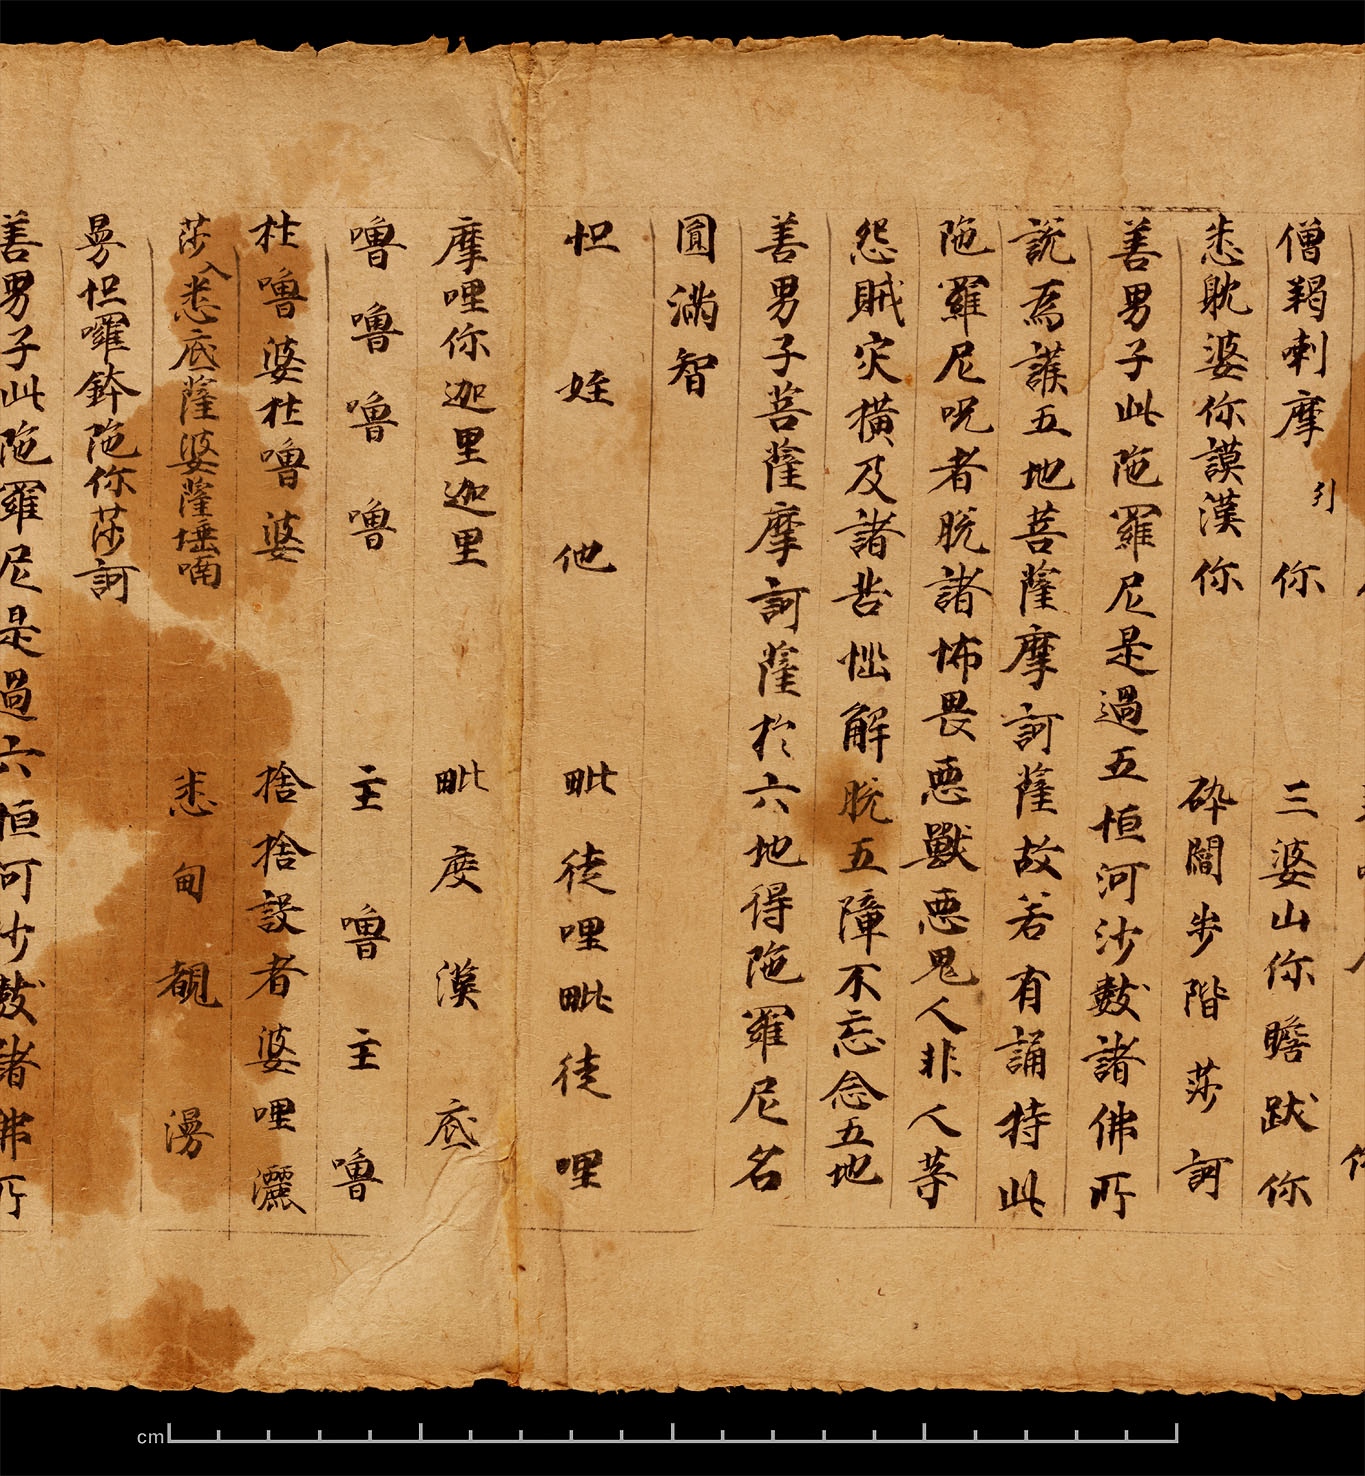 僧羯喇摩引你　三婆山你瞻跋你
悉耽婆你謨漢你　碎闇步階莎訶
善男子此陁羅尼是過五恒河沙數諸佛所
說為護五地菩薩摩訶薩故若有誦持此
陁羅尼呪者脫諸怖畏惡獸惡鬼人非人等
怨賊灾橫及諸苦惱解脫五障不忘念五地
善男子菩薩摩訶薩於六地得陁羅尼名
圓滿智
怛姪他　毗徒哩毗徒哩
摩哩你迦里迦里　毗度漢底
嚕嚕嚕嚕　主嚕主嚕
杜嚕婆杜嚕婆　捨捨設者婆哩灑
莎入悉底薩婆薩埵喃　悉甸覩漫
曼怛囉鉢陁你莎訶
善男子此陁羅尼是過六恒河沙數諸佛所